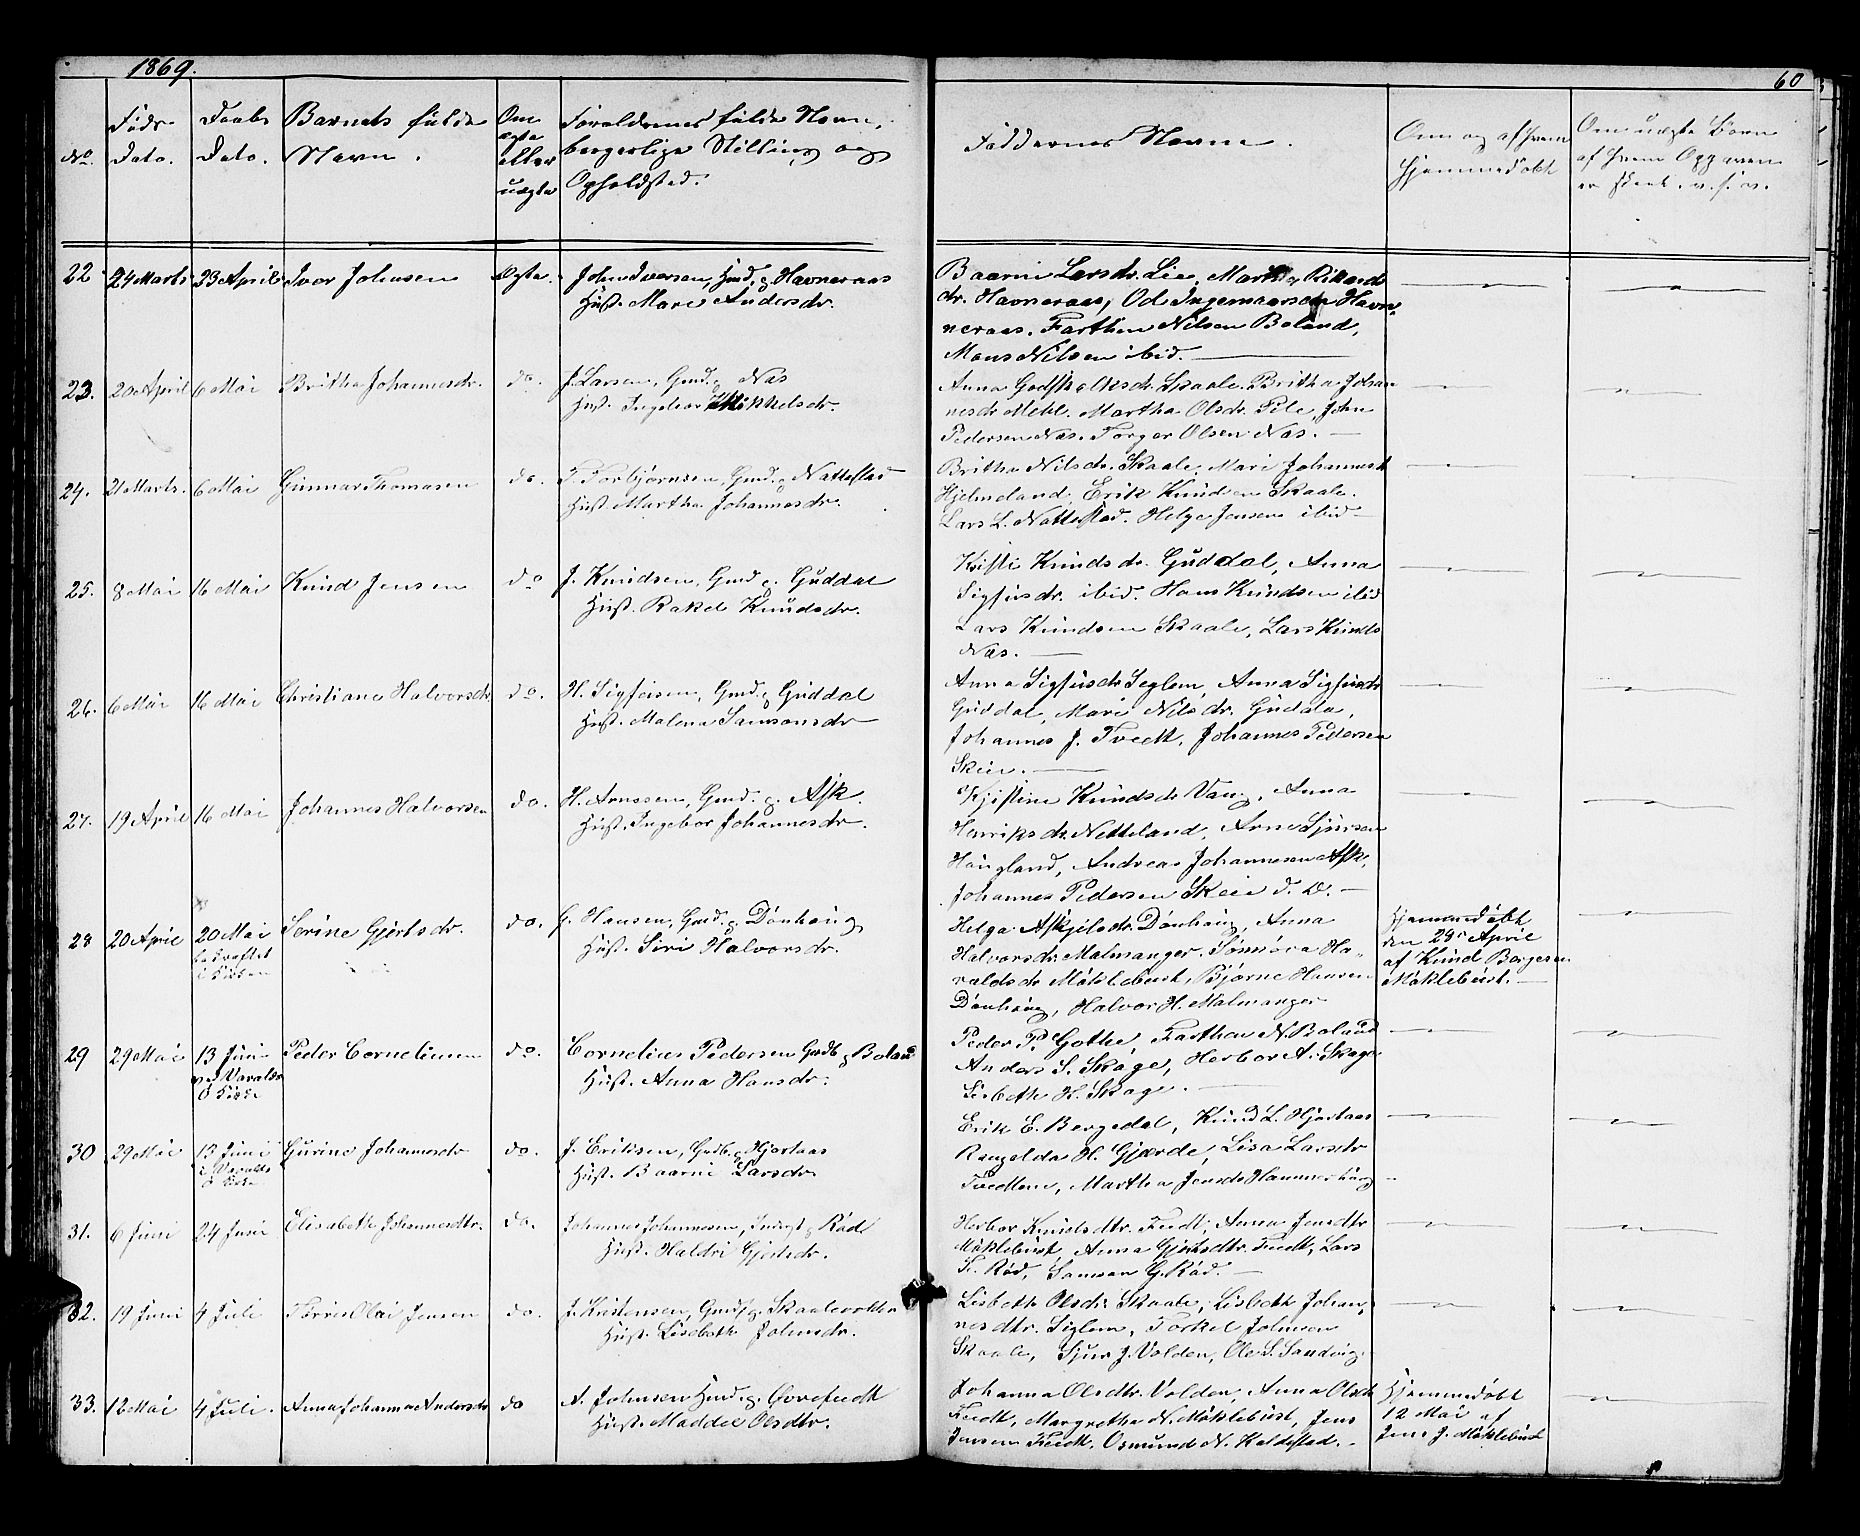 1869.
60
No.
Føds-
Dato.
Daabs
Dato.
Barnets fulde
Navn.
Om
ægte
eller
uægte
Forældrenes fulde Navn,
borgerlige Stilling og
Opholdsted.
Faddernes Navne.
Om og af hvem
hjemmedøbt
Om uægte Børn
af hvem Opgaven
er skeet. v. s. v.
22 24 Marts 23 April Iver Johnsen Ægte. John Iversen, Hmd. g. Havneraas
Hust. Mari Andersdr.
Baarni Larsdr. Lie, Martha Rikard
dr. Havneraas, Od Ingemaarsen Hav
neraas. Farthin Nilsen Boland,
Mons Nilsen ibid.
23. 20 April 6 Mai Britha Johannesdr. do. J. Larsen, Gmd. g. Næs
Hust. Ingebor Mikkelsdr.
Anna Godskalksdr. Skaale. Britha Johan
nesdr Mehl. Martha Olsdr. Pile, John
Pedersen Næs. Torger Olsen Næs.
24. 21 Marts. 6 Mai Gunnar Thomasen do. T. Torbjørnsen, Gmd. g. Nattestad
Hust. Martha Johannesdr.
Britha Nilsdr. Skaale, Mari Johannesd
Hjelmeland, Erik Knudsen Skaale.
Lars L. Nattestad. Helge Jensen ibid
25. 8 Mai 16 Mai Knud Jensen do J. Knudsen, Gmd g. Guddal
Hust. Rakel Knudsdr.
Kristi Knudsdr. Guddal, Anna
Sigfusdr. ibid. Hans Knudsen ibid
Lars Knudsen Skaale, Lars Knuds
Næs.
26. 6 Mai 16 Mai Christiane Halvorsdr. do. H. Sigfusen, Gmd. g. Guddal
Hust. Malena Samsonsdr
Anna Sigfusdr Seglem, Anna Sigfusdr
Guddal, Mari Nilsdr. Gudala,
Johannes J. Tvedt, Johannes Pedersen
Skeie.
27. 19 April 16 Mai Johannes Halvorsen do. H. Arnesen, Gmd. g. Ask.
Hust. Ingebor Johannesdr.
Kjistine Knudsdr Vang, Anna
Henriksdr. Netteland, Arne Sjursen
Haugland, Andreas Johannesen Ask,
Johannes Pedersen Skeie d. Æ.
28 20 April 20 Mai
bekræftet
i Kirken
Serine Gjertsdr. do. G. Hansen, Gmd. g. Dønhaug
Hust. Siri Halvorsdr.
Helga Askjelsdr. Dønhaug, Anna
Halvorsdr. Malmanger. Sønnøva Ha-
raldsdr Møklebust, Bjørne Hansen
Dønhaug, Halvor H. Malmanger
Hjemmedøbt
den 28de April
af Knud Borgesen
Møklebust.
29 29 Mai 13 Juni
ved Varalds
ø Kirke
Peder Corneliusen do. Cornelius Pedersen Grdb. g. Boland
Hust. Anna Hansdr.
Peder P. Gothe, Farthen N. Boland
Anders S. Skage, Herbor A. Skage
Lisbeth H. Skage.
30 29 Mai 13 Juni
i Varalds
ø Kirke
Gurine Johannesdr do. J. Eriksen, Grdb. g. Hjortaas
Hust. Baarni Larsdr
Erik E. Bergedal, Knud L. Hjortaas
Rangelda H. Gjærde, Lisa Larsdr
Tvedten, Martha Jensdr Hammerhaug
31. 6 Juni 24 Juni Elisabeth Johannesdtr. do. Johannes Johannesen, Inderst g. Rød
Hust. Haldri Gjertsdr.
Herbor Knudsdtr. Tvedt, Anna Jensdtr
Møklebust, Anna Gjertsdtr. Tvedt, Lars
K. Rød, Samson G. Rød.
32. 19 Juni 4 Juli Torres Olai Jensen do. J. Kristensen, Gmd. g. Skaalevikken
Hust. Lisebeth Johnsdr.
Lisbeth Olsdr. Skaale, Lisbeth Johan
nesdtr. Siglem, Torkel Johnsen
Skaale, Sjur J. Valden, Ole S. Sandvig
33. 12 Mai 4 Juli. Anna Johanna Andersdr do A. Johnsen Hmd. g. Øvrefudt
Hust. Maddel Olsdtr.
Johanna Olsdtr. Valden, Anna Olsdt
Tvedt, Margretha N. Møklebust, Jens
Jensen Tvedt, Osmund N. Haldestad.
Hjemmedøbt
12 Mai af
Jens J. Møklebust